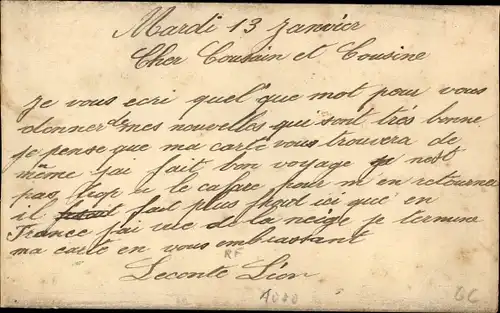 Mardi 13 Janvier
Cher Cousain et Cousine
Je vous ecri quel'que mot pour vous
donner de mes nouvelles qui sont très bonne
je pense que ma carte vous trouvera de
même j'ai fait bon voyage je nest
pas trop u le cafare pour m en retourner
il fait plus froid ici que en
France j'ai vue de la neige je termine
ma carte en vous embrassant
Leconte Léon
RF
GC